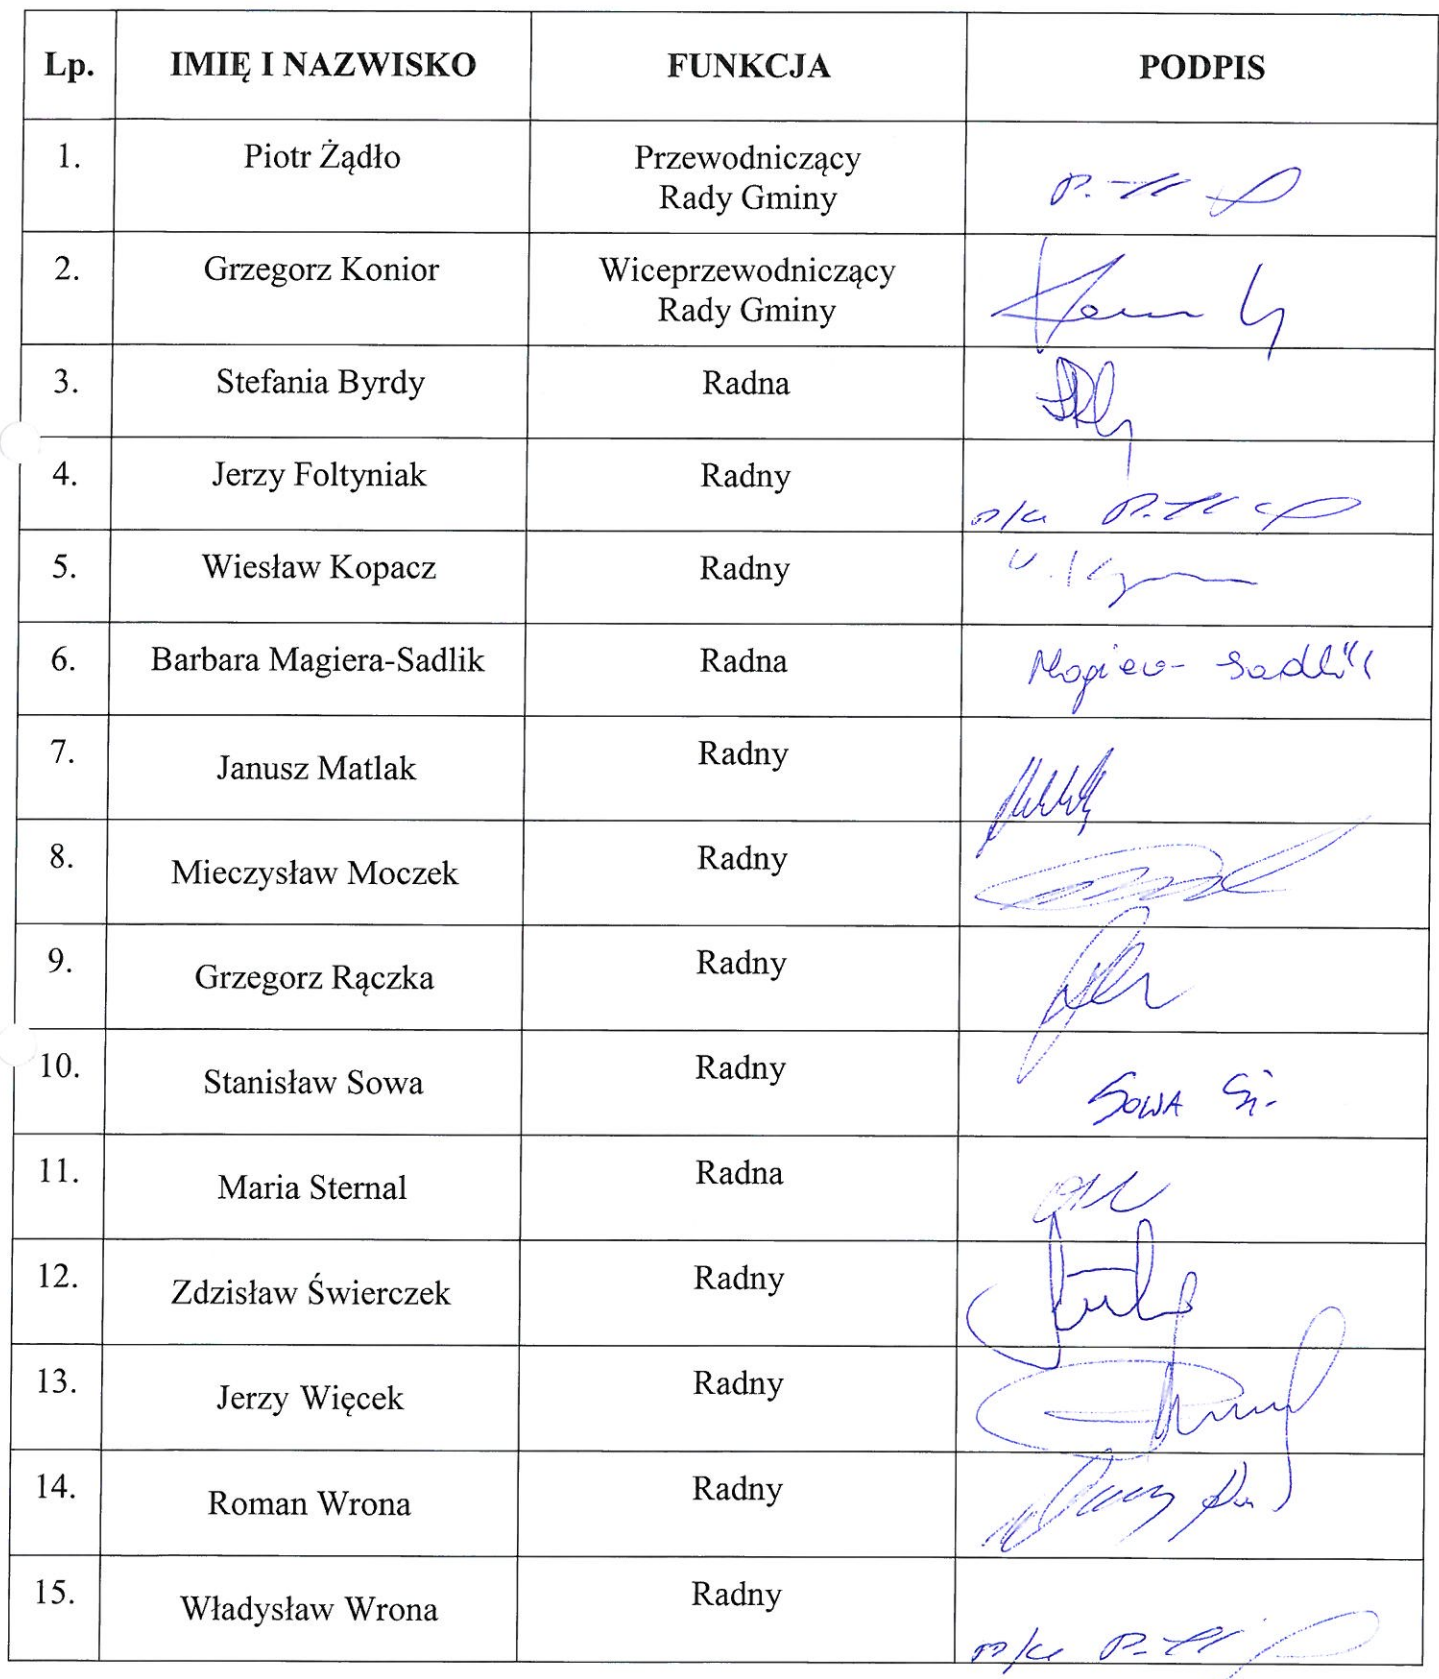 Lp. IMIĘ I NAZWISKO FUNKCJA PODPIS
1. Piotr Żądło Przewodniczący
Rady Gminy
2. Grzegorz Konior Wiceprzewodniczący
Rady Gminy
3. Stefania Byrdy Radna
4. Jerzy Foltyniak Radny
5. Wiesław Kopacz Radny
6. Barbara Magiera-Sadlik Radna Magiera-Sadlik
7. Janusz Matlak Radny
8. Mieczysław Moczek Radny
9. Grzegorz Rączka Radny
10. Stanisław Sowa Radny SOWA St.
11. Maria Sternal Radna
12. Zdzisław Świerczek Radny
13. Jerzy Więcek Radny
14. Roman Wrona Radny
15. Władysław Wrona Radny